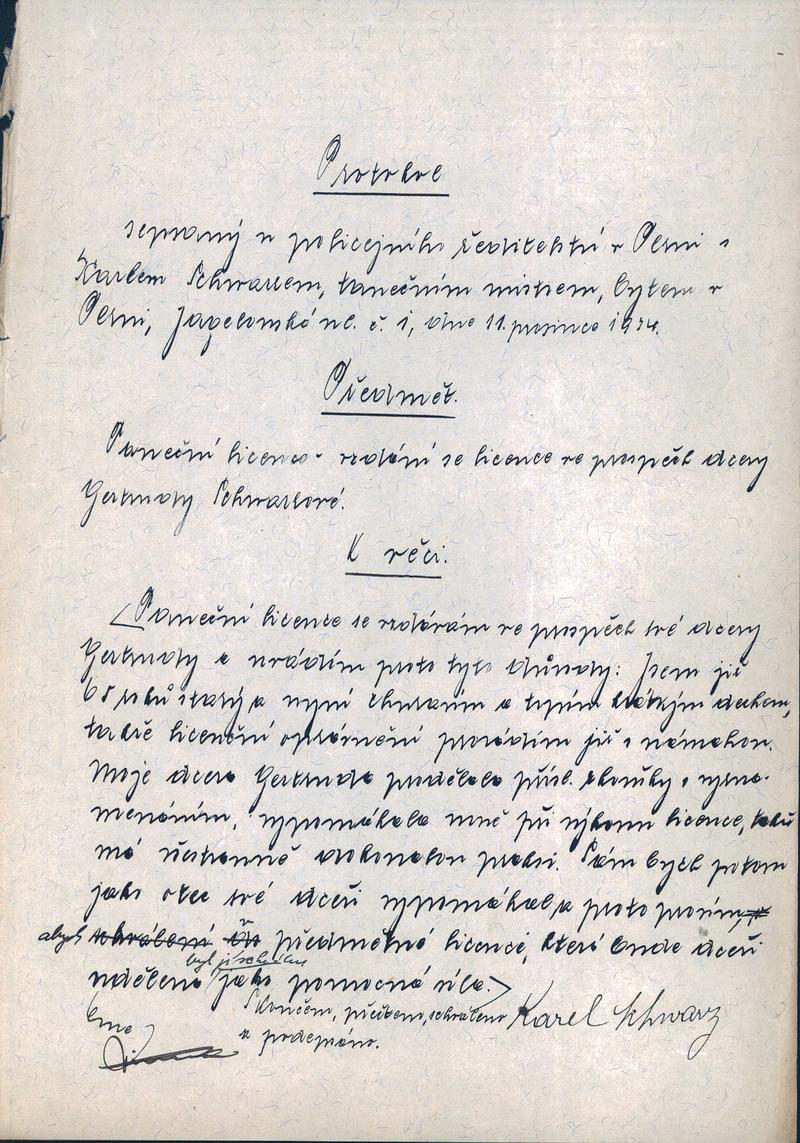 Protokol
sepsaný u policejního ředitelství v Plzni s
Karlem Schwarzem, tanečním mistrem, bytem v
Plzni, Jagelonská ul. č. 1, dne 11. prosince 1934.
Předmět.
Taneční licence - vzdání se licence ve prospěch dcery
Gertrudy Schwarzové.
K věci.
Taneční licence se vzdávám ve prospěch své dcery
Gertrudy a uvádím proto tyto důvody: Jsem již
68 roků starý a nyní churavím a trpím krátkým dechem,
takže licenční oprávnění provádím již s námahou.
Moje dcera Gertruda prodělala přísl. zkoušky s vyzna-
menáním, vypomáhala mně při výkonu licence, takže
má všestranně dokonalou praksi. Sám bych potom
jako otec své dceři vypomáhal a proto prosím,
abych schválení předmětné licence, která bude dceři
byl připsán
udělena jako pomocná síla.
Skončeno, přečteno, schváleno Karel Schwarz
a podepsáno.